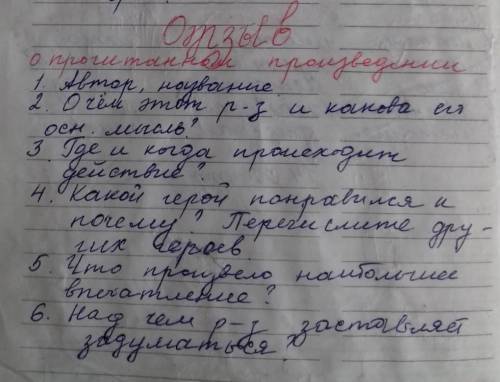 Отзыв
о прочитанном произведении
1. Автор, название
2. О чём этот р-з и какова его
осн. мысль?
3. Где и когда происходит
действие?
4. Какой герой понравился и
почему? Перечислите дру-
гих героев.
5. Что произвело наибольшее
впечатление?
6. Над чем р-з заставляет
задуматься?